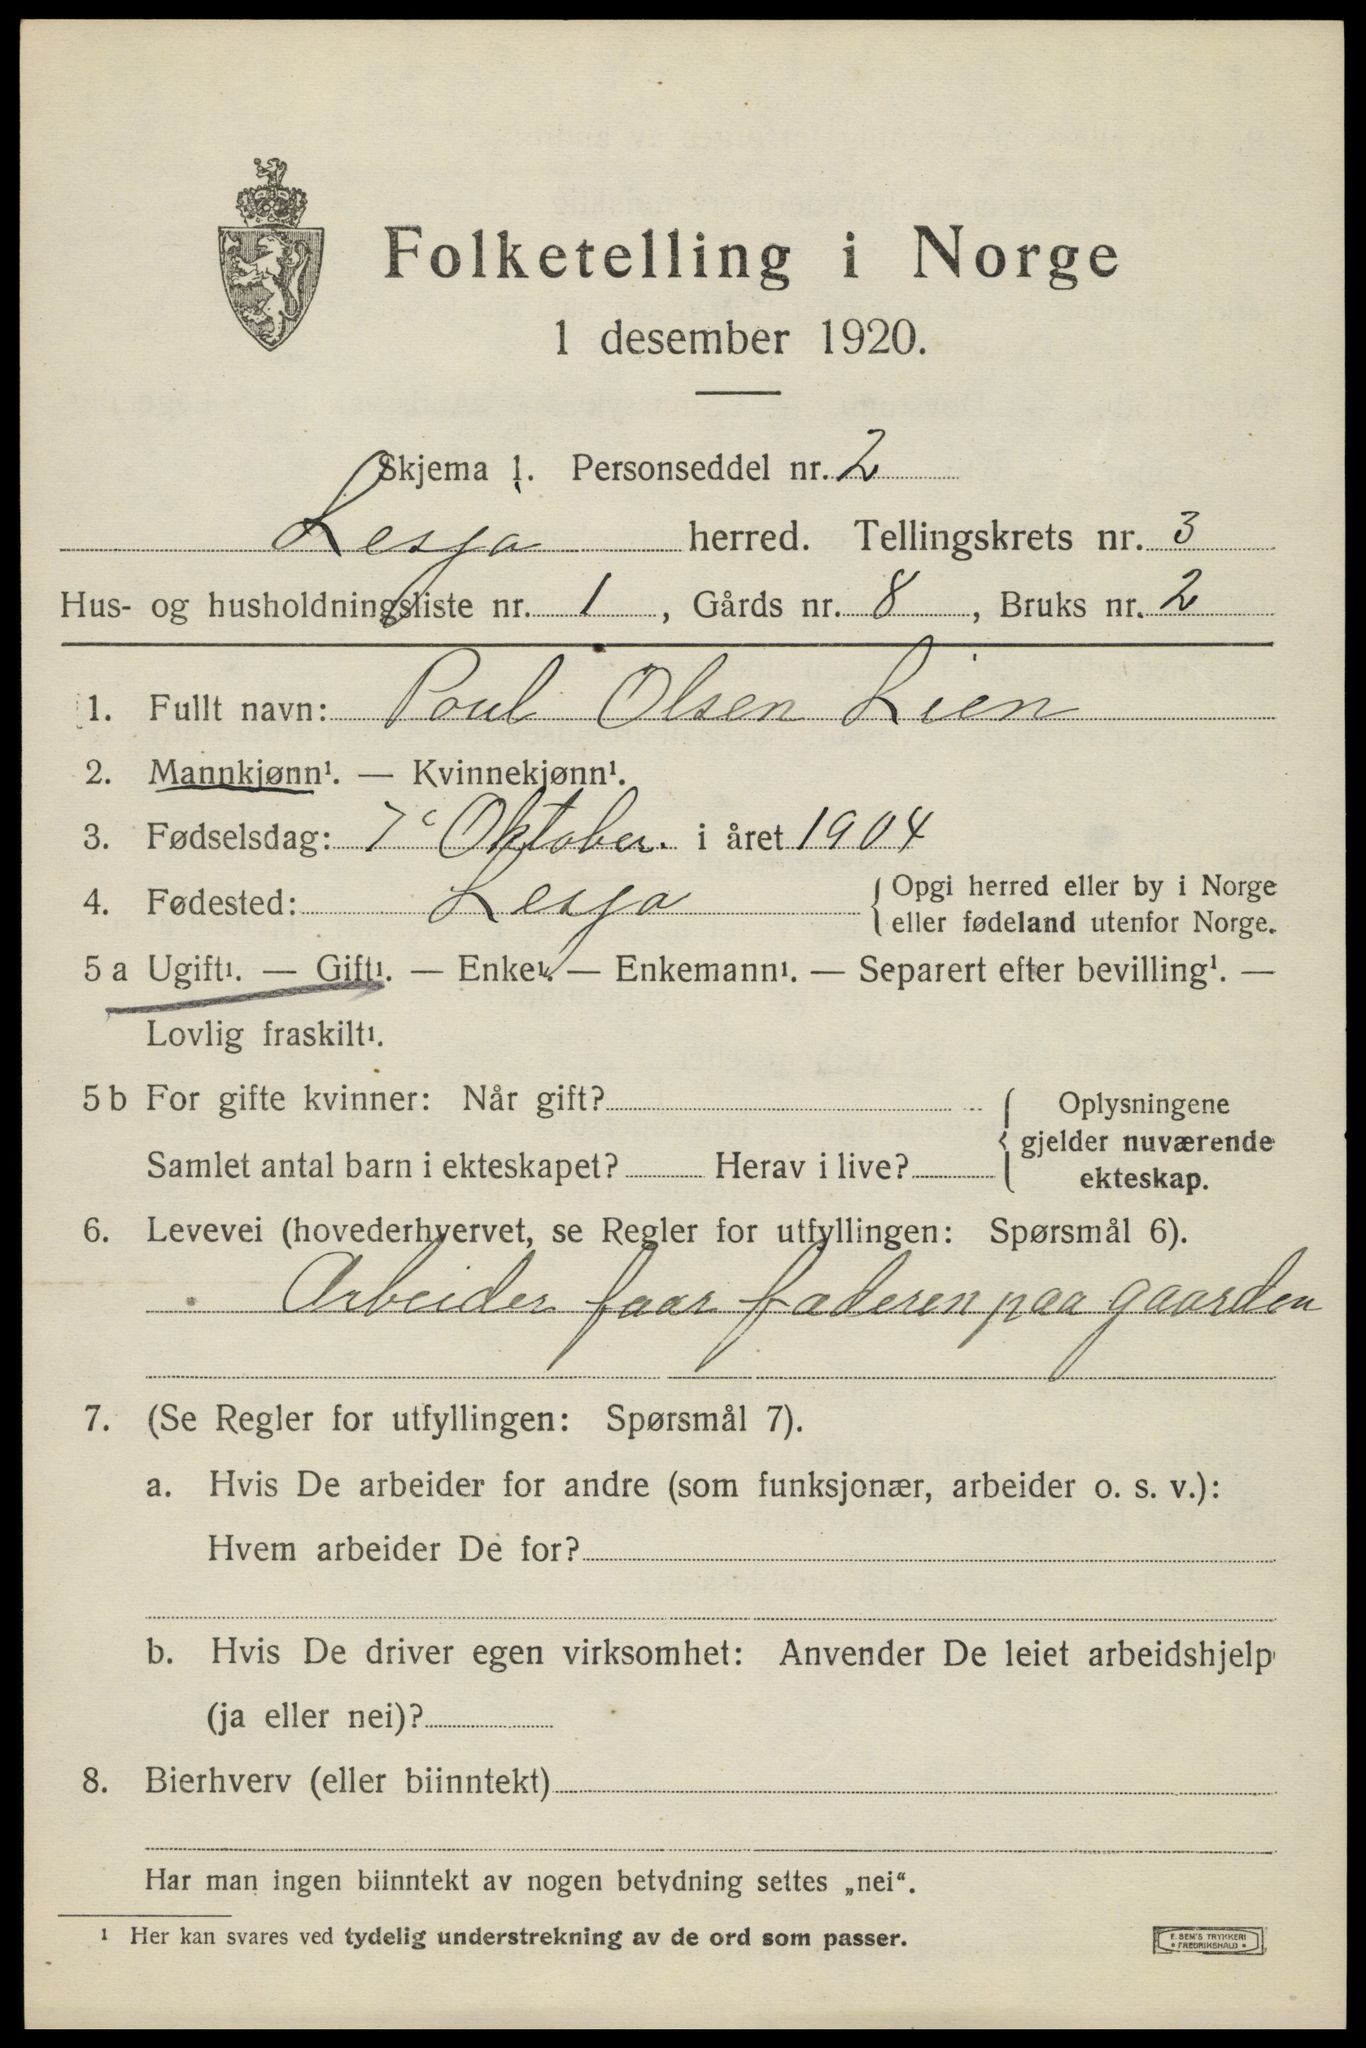 Folketelling i Norge
1 desember 1920.
Skjema 1. Personseddel nr. 2
Lesja herred. Tellingskrets nr. 3
Hus- og husholdningsliste nr. 1, Gårds nr. 8, Bruks nr. 2
1. Fullt navn: Poul Olsen Lien
2. Mannkjønn¹. — Kvinnekjønn¹.
3. Fødselsdag: 7 Oktober. i året 1904
4. Fødested: Lesja { Opgi herred eller by i Norge
eller fødeland utenfor Norge.
5 a Ugift¹. — Gift¹. — Enke¹. — Enkemann¹. — Separert efter bevilling¹. —
Lovlig fraskilt¹.
5 b For gifte kvinner: Når gift? { Oplysningene
gjelder nuværende
Samlet antal barn i ekteskapet? Herav i live? ekteskap.
6. Levevei (hovederhvervet, se Regler for utfyllingen: Spørsmål 6).
Arbeider faar faderen paa gaarden
7. (Se Regler for utfyllingen: Spørsmål 7).
a. Hvis De arbeider for andre (som funksjonær, arbeider o. s. v.):
Hvem arbeider De for?
b. Hvis De driver egen virksomhet: Anvender De leiet arbeidshjelp
(ja eller nei)?
8. Bierhverv (eller biinntekt)
Har man ingen biinntekt av nogen betydning settes „nei“.
¹ Her kan svares ved tydelig understrekning av de ord som passer.
E. SEM'S TRYKKERI
• FREDRIKSHALD •